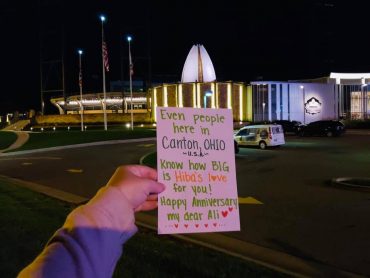 Even people
here in
Canton, OHIO
~U.S.A~
Know how BIG
is Hiba's love
for you!
Happy Anniversary
my dear Ali